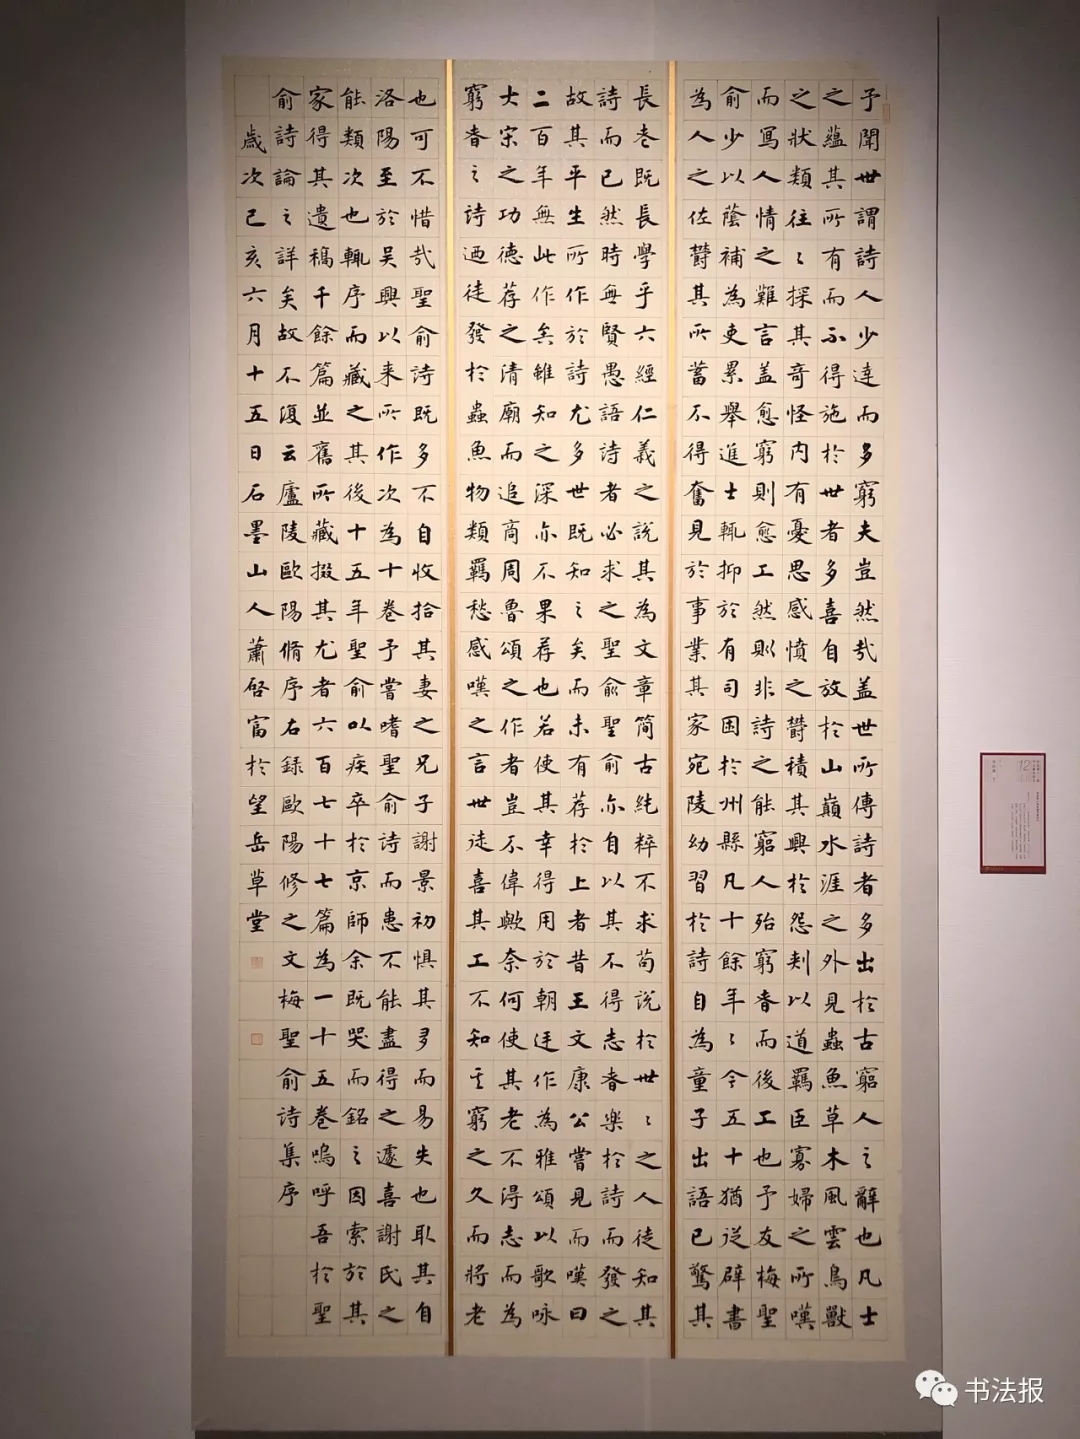 予聞世謂詩人少達而多窮夫豈然哉盖世所傳詩者多出於古窮人之辭也凡士
之蘊其所有而不得施於世者多喜自放於山巔水涯之外見蟲魚草木風雲鳥獸
之狀類往〻探其奇怪内有憂思感憤之鬱積其興於怨刺以道羈臣寡婦之所嘆
而寫人情之難言盖愈窮則愈工然則非詩之能窮人殆窮者而後工也予友梅聖
俞少以蔭補為吏累舉進士輒抑於有司困於州縣凡十餘年〻今五十猶從辟書
為人之佐鬱其所蓄不得奮見於事業其家宛陵幼習於詩自為童子出語已驚其
長老既長學乎六經仁義之說其為文章简古純粹不求苟說於世〻之人徒知其
詩而已然時無賢愚語詩者必求之聖俞聖俞亦自以其不得志者樂於詩而發之
故其平生所作於詩尤多世既知之矣而未有荐於上者昔王文康公嘗見而嘆曰
二百年無此作矣雖知之深亦不果荐也若使其幸得用於朝廷作為雅頌以歌咏
大宋之功德荐之清廟而追商周魯頌之作者豈不偉歟奈何使其老不得志而為
窮者之詩迺徒發於蟲魚物類羈愁感嘆之言世徒喜其工不知其窮之久而將老
也可不惜哉聖俞詩既多不自收拾其妻之兄子謝景初懼其多而易失也取其自
洛陽至於吴興以来所作次為十卷予嘗嗜聖俞詩而患不能盡得之遽喜謝氏之
能類次也輒序而藏之其後十五年聖俞以疾卒於京師余既哭而銘之因索於其
家得其遺稿千餘篇並舊所藏掇其尤者六百七十七篇為一十五卷嗚呼吾於聖
俞詩論之詳矣故不復云廬陵歐陽脩序右録歐陽修之文梅聖俞詩集序
歲次己亥六月十五日石墨山人蕭啓富於望岳草堂
书法报